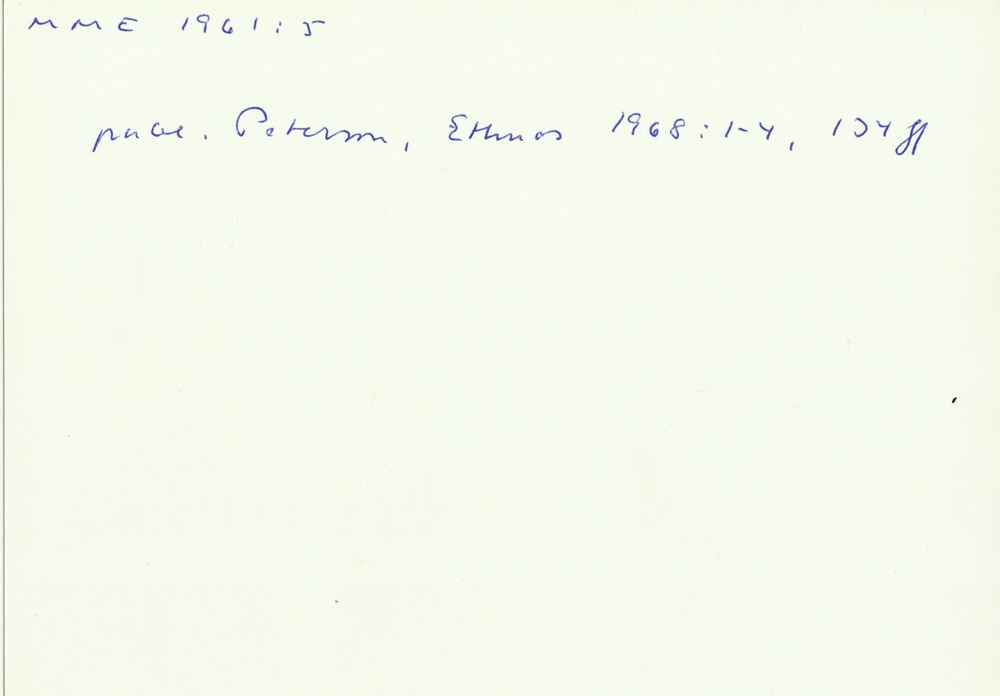 MME 1961:5
publ. Peterson, Ethnos 1968:1-4, 134 ff